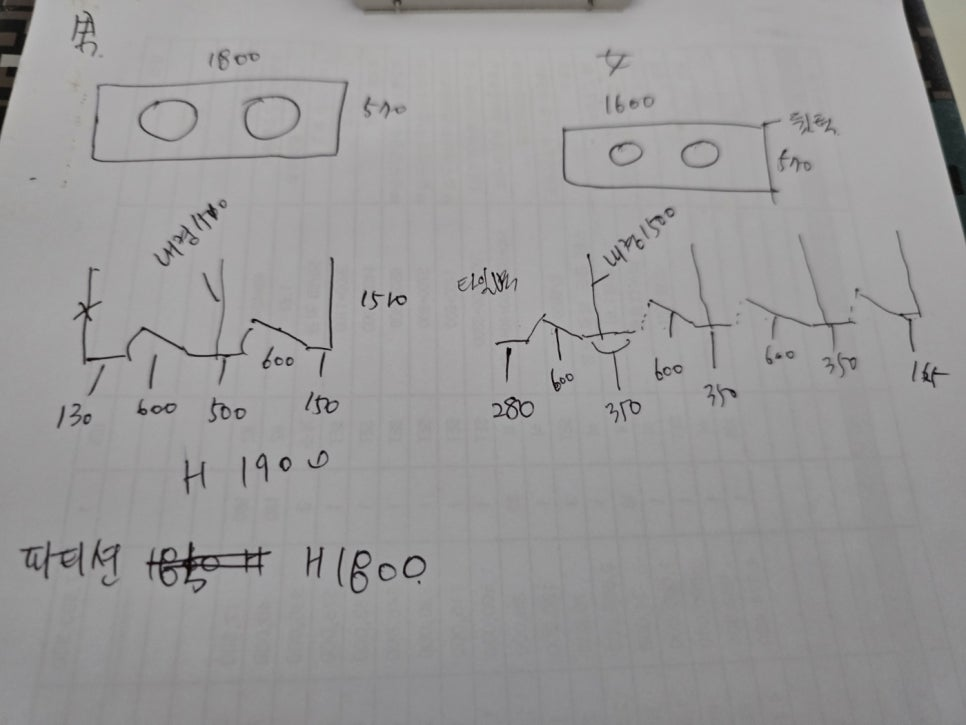 男
1800
570
女
1600
뒷턱
570
1510
130
600
500
600
150
H 1900
타일벽
내경1500
280
600
350
600
350
600
350
파티션 H1800